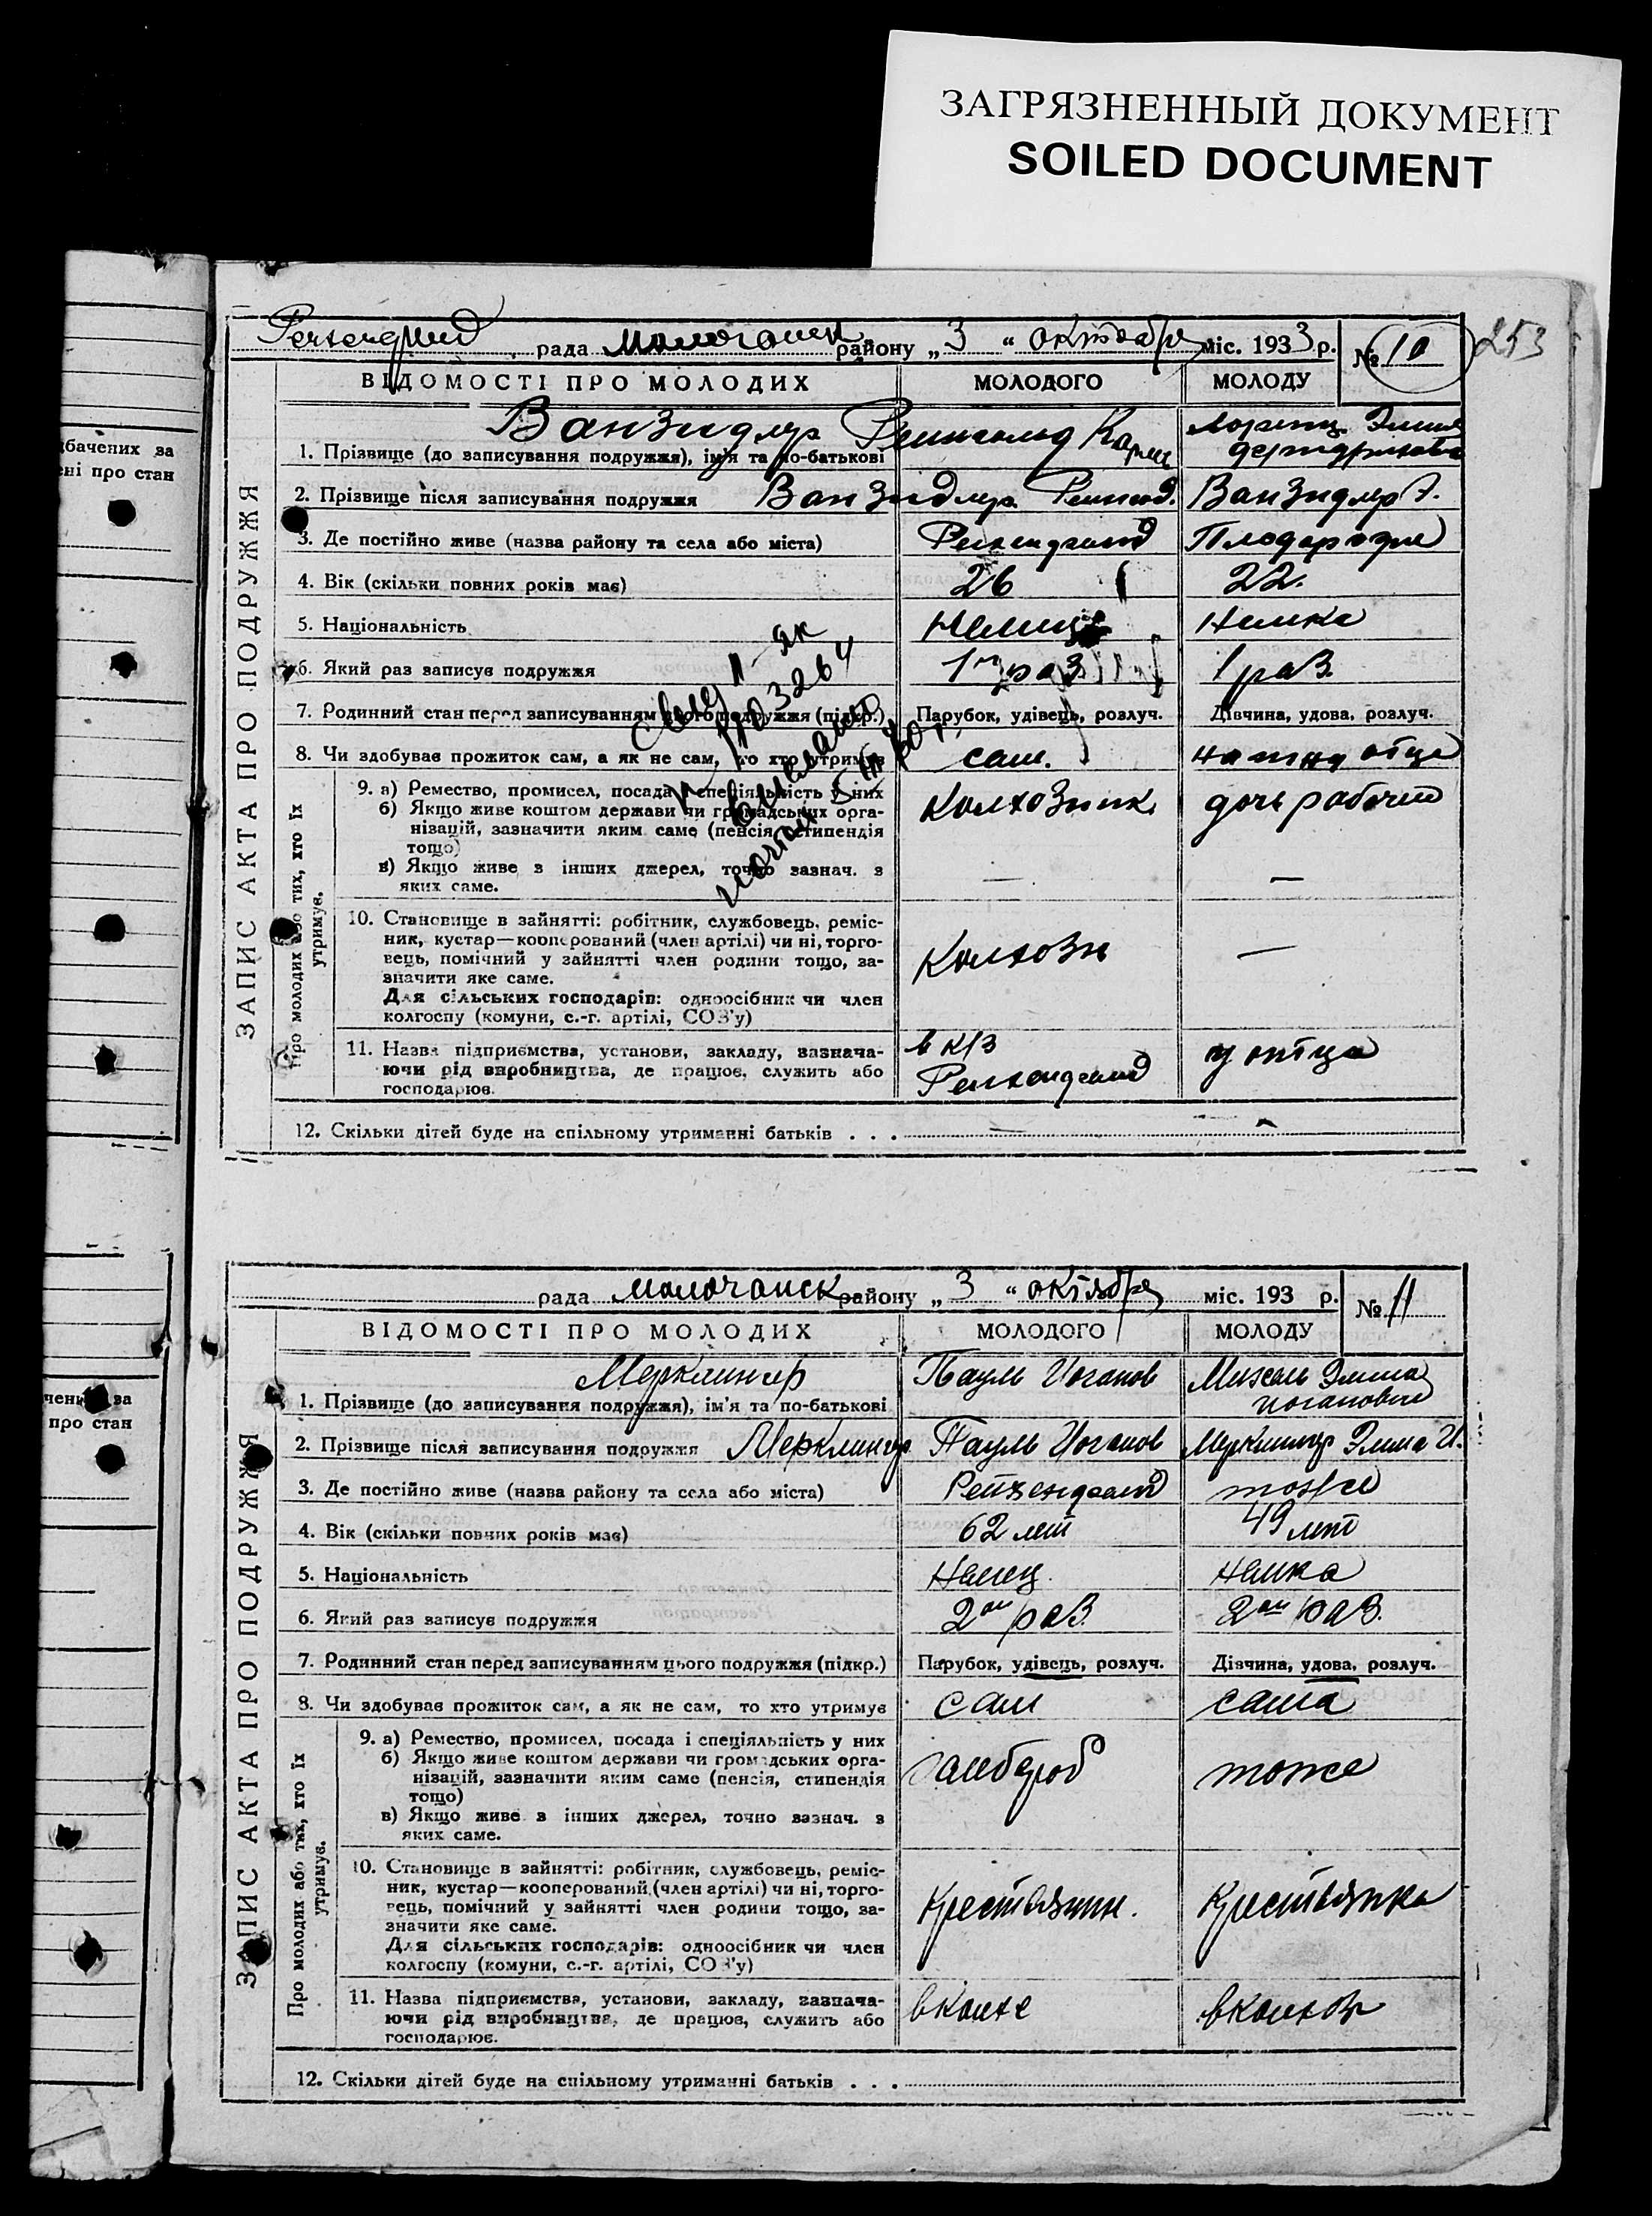 ЗАГРЯЗНЕННЫЙ ДОКУМЕНТ
SOILED DOCUMENT
бачених за
ені про стан
рада району „3“ октября міс. 1933 р. № 10
253
ВІДОМОСТІ ПРО МОЛОДИХ МОЛОДОГО МОЛОДУ
ЗАПИС АКТА ПРО ПОДРУЖЖЯ
ВанЗидлер Рейнгольд
1. Прізвище (до записування подружжя), ім'я та по-батькові
2. Прізвище після записування подружжя ВанЗидлер ВанЗидлер Э.
3. Де постійно живе (назва району та села або міста)
4. Вік (скільки повних років має) 26 22.
5. Національність Немец Немка
6. Який раз записує подружжя 1 раз 1 раз.
7. Родинний стан перед записуванням цього подружжя (підкр.) Парубок, удівець, розлуч. Дівчина, удова, розлуч.
8. Чи здобуває прожиток сам, а як не сам, то хто утримує сам. отца
Про молодих або тих, хто їх утримує.
9. а) Ремество, промисел, посада і спеціяльність у них Колхозник дочь рабочего
б) Якщо живе коштом держави чи громадських орга-
нізацій, зазначити яким саме (пенсія, стипендія
тощо)
в) Якщо живе з інших джерел, точно зазнач. з — —
яких саме.
10. Становище в зайнятті: робітник, службовець, реміс-
ник, кустар—кооперований (член артілі) чи ні, торго-
вець, помічний у зайнятті член родини тощо, за- —
значити яке саме.
Для сільських господарів: одноосібник чи член
колгоспу (комуни, с.-г. артілі, СОЗ'у)
11. Назва підприємства, установи, закладу, зазнача- в к/з у отца
ючи рід виробництва, де працює, служить або
господарює.
12. Скільки дітей буде на спільному утриманні батьків . . .
чених за
про стан
рада Молочанск району „3“ октября міс. 193 р. № 11
ВІДОМОСТІ ПРО МОЛОДИХ МОЛОДОГО МОЛОДУ
ЗАПИС АКТА ПРО ПОДРУЖЖЯ
Мерклингер Пауль Иоганов
1. Прізвище (до записування подружжя), ім'я та по-батькові
2. Прізвище після записування подружжя Мерклингер Пауль Иоганов Мерклингер И.
3. Де постійно живе (назва району та села або міста) Рейхенфельд тоже
4. Вік (скільки повних років має) 62 лет 49 лет
5. Національність Немец. Немка
6. Який раз записує подружжя 2ой раз. 2ой раз.
7. Родинний стан перед записуванням цього подружжя (підкр.) Парубок, удівець, розлуч. Дівчина, удова, розлуч.
8. Чи здобуває прожиток сам, а як не сам, то хто утримує сам сама
Про молодих або тих, хто їх утримує.
9. а) Ремество, промисел, посада і спеціяльність у них
б) Якщо живе коштом держави чи громадських орга- хлебороб тоже
нізацій, зазначити яким саме (пенсія, стипендія
тощо)
в) Якщо живе з інших джерел, точно зазнач. з
яких саме.
10. Становище в зайнятті: робітник, службовець, реміс-
ник, кустар—кооперований (член артілі) чи ні, торго- Крестьянин. Крестьянка
вець, помічний у зайнятті член родини тощо, за-
значити яке саме.
Для сільських господарів: одноосібник чи член
колгоспу (комуни, с.-г. артілі, СОЗ'у)
11. Назва підприємства, установи, закладу, зазнача-
ючи рід виробництва, де працює, служить або
господарює.
12. Скільки дітей буде на спільному утриманні батьків . . .